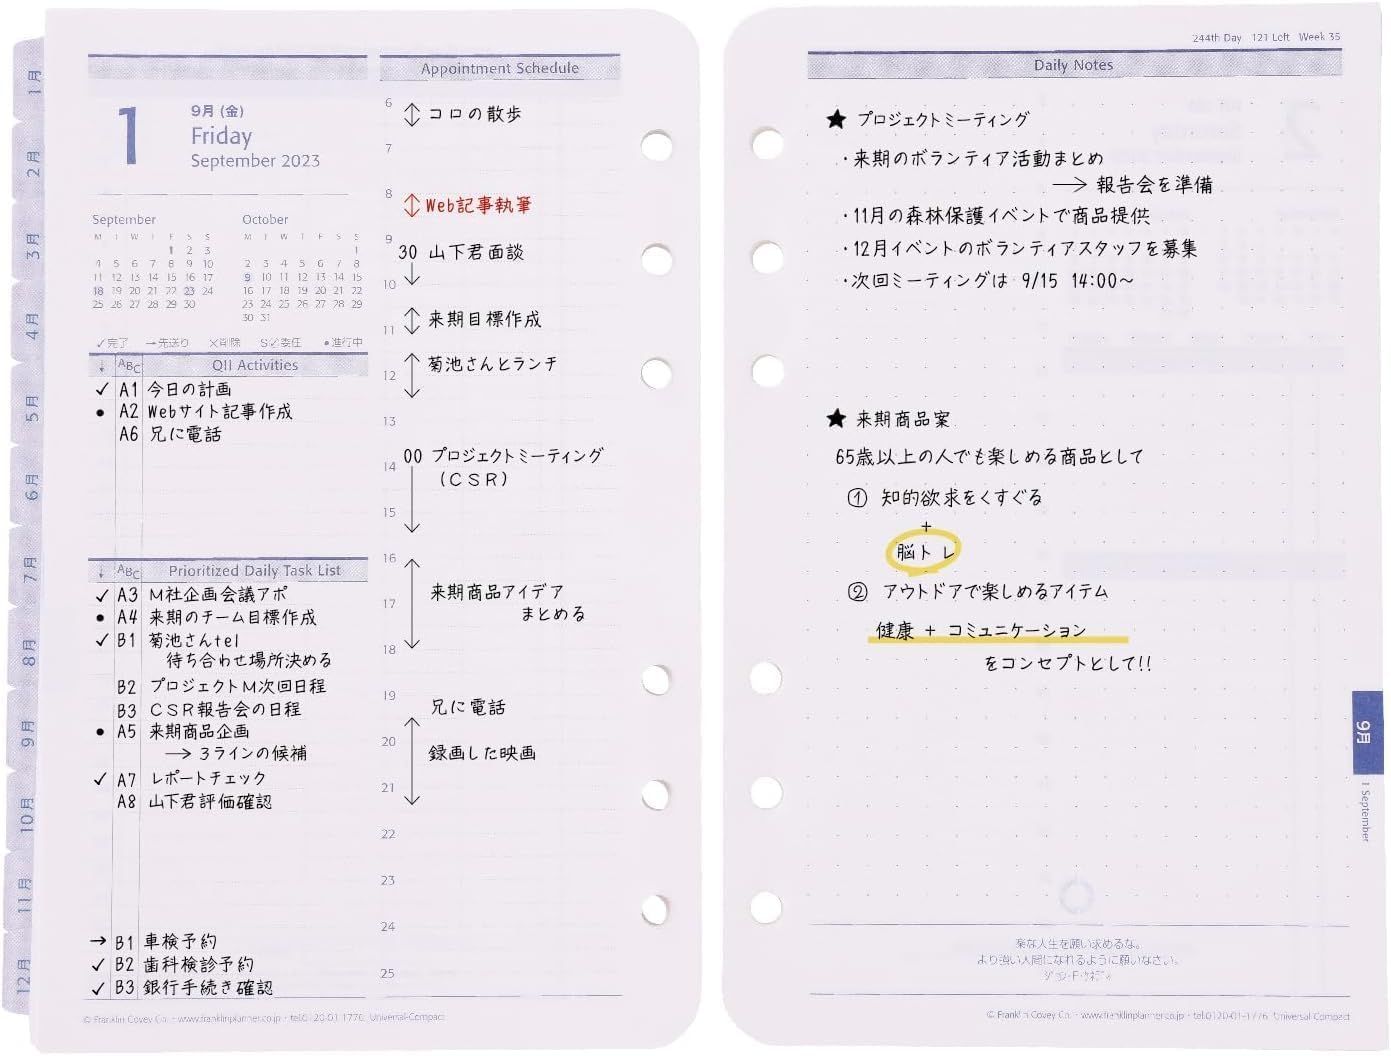 1月
2月
3月
4月
5月
6月
7月
8月
9月
10月
11月
12月
1
9月 (金)
Friday
September 2023
September
M T W T F S S
1 2 3
4 5 6 7 8 9 10
11 12 13 14 15 16 17
18 19 20 21 22 23 24
25 26 27 28 29 30
October
M T W T F S S
1
2 3 4 5 6 7 8
9 10 11 12 13 14 15
16 17 18 19 20 21 22
23 24 25 26 27 28 29
30 31
✓完了 →先送り ×削除 S✓委任 •進行中
↓ ABC QII Activities
✓ A1 今日の計画
• A2 Webサイト記事作成
A6 兄に電話
↓ ABC Prioritized Daily Task List
✓ A3 M社企画会議アポ
• A4 来期のチーム目標作成
✓ B1 菊池さんtel
待ち合わせ場所決める
B2 プロジェクトM次回日程
B3 CSR報告会の日程
• A5 来期商品企画
→ 3ラインの候補
✓ A7 レポートチェック
A8 山下君評価確認
→ B1 車検予約
✓ B2 歯科検診予約
✓ B3 銀行手続き確認
© Franklin Covey Co. · www.franklinplanner.co.jp · tel.0120-01-1776 Universal-Compact
Appointment Schedule
6 コロの散歩
7
8 Web記事執筆
9
30 山下君面談
10
来期目標作成
11
菊池さんとランチ
12
13
14 00 プロジェクトミーティング
(CSR)
15
16
来期商品アイデア
17 まとめる
18
19 兄に電話
20 録画した映画
21
22
23
24
25
244th Day 121 Left Week 35
Daily Notes
★ プロジェクトミーティング
・来期のボランティア活動まとめ
→ 報告会を準備
・11月の森林保護イベントで商品提供
・12月イベントのボランティアスタッフを募集
・次回ミーティングは 9/15 14:00〜
★ 来期商品案
65歳以上の人でも楽しめる商品として
① 知的欲求をくすぐる
+
脳トレ
② アウトドアで楽しめるアイテム
健康 + コミュニケーション
をコンセプトとして!!
9月
1 September
楽な人生を願い求めるな。
より強い人間になれるように願いなさい。
ジョン・F・ケネディ
© Franklin Covey Co. · www.franklinplanner.co.jp · tel.0120-01-1776 Universal-Compact